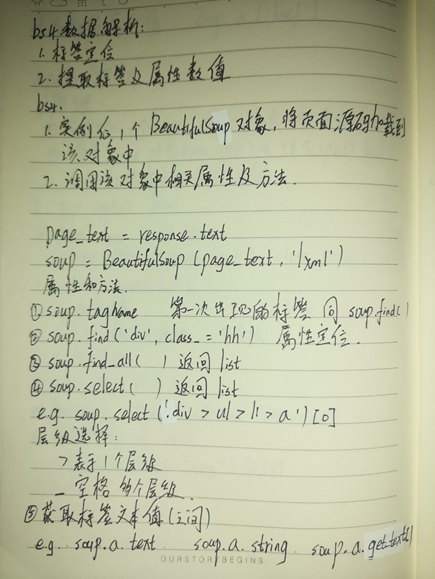 bs4数据解析:
1. 标签定位
2. 提取标签及属性数值
bs4.
1. 实例化1个BeautifulSoup对象,将页面源码加载到
该对象中
2. 调用该对象中相关属性及方法.
page_text = response.text
soup = BeautifulSoup (page_text, 'lxml')
属性和方法.
① soup.tagName 第一次出现的标签 同 soup.find()
② soup.find('div', class_='hh') 属性定位.
③ soup.find_all( ) 返回list
④ soup.select( ) 返回list
e.g. soup.select('.div > ul > li > a')[0]
层级选择:
> 表示1个层级
_ 空格 多个层级.
⑤ 获取标签文本值(之间)
e.g. soup.a.text soup.a.string soup.a.get_text()
OURSTORYBEGINS